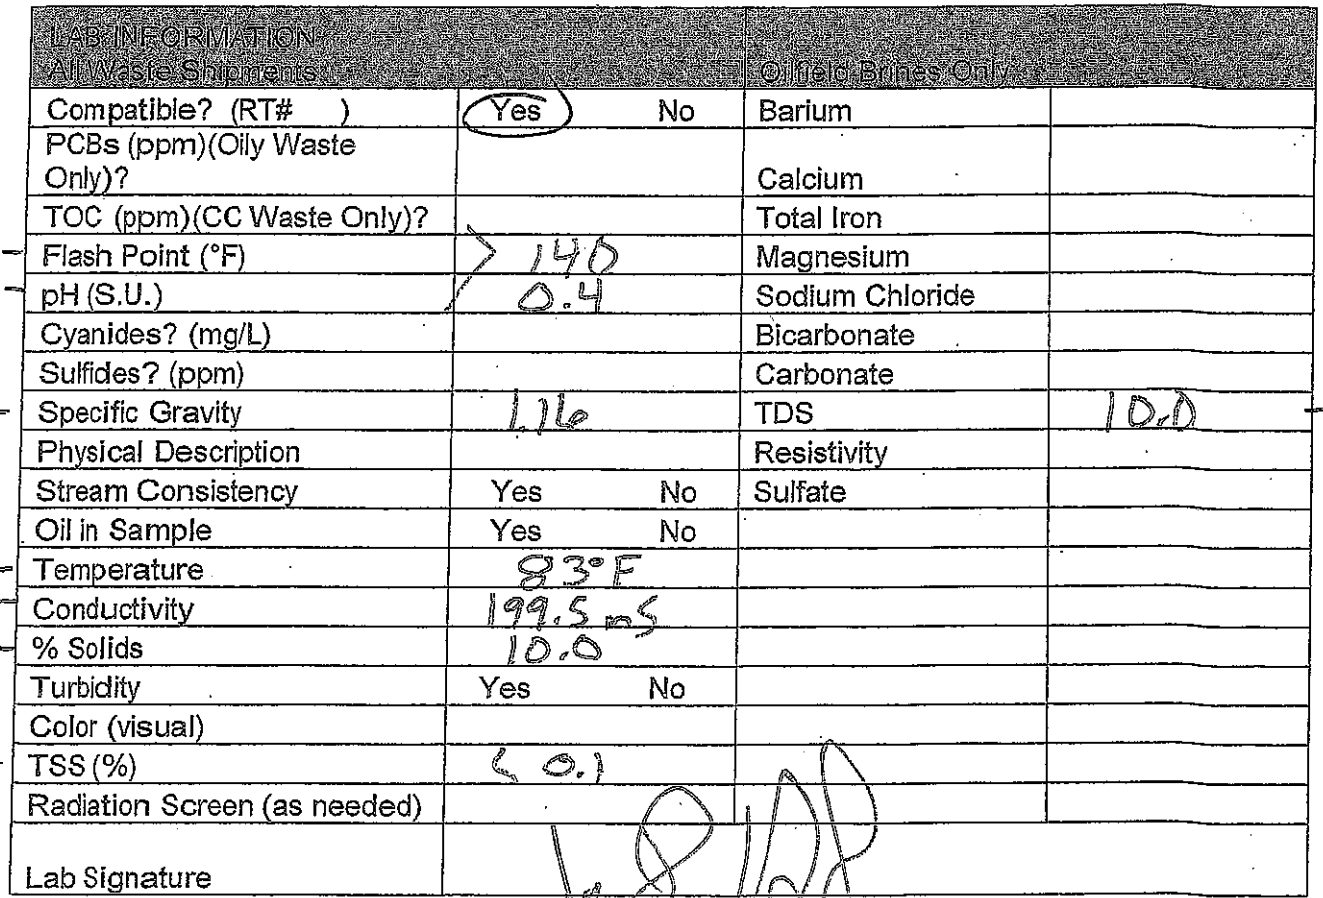 LAB INFORMATION
All Waste Shipments Oilfield Brines Only
Compatible? (RT# ) Yes No Barium
PCBs (ppm)(Oily Waste
Only)? Calcium
TOC (ppm)(CC Waste Only)? Total Iron
Flash Point (°F) > 140 Magnesium
pH (S.U.) 0.4 Sodium Chloride
Cyanides? (mg/L) Bicarbonate
Sulfides? (ppm) Carbonate
Specific Gravity 1.16 TDS 10.0
Physical Description Resistivity
Stream Consistency Yes No Sulfate
Oil in Sample Yes No
Temperature 83°F
Conductivity 199.5 mS
% Solids 10.0
Turbidity Yes No
Color (visual)
TSS (%) < 0.1
Radiation Screen (as needed)
Lab Signature